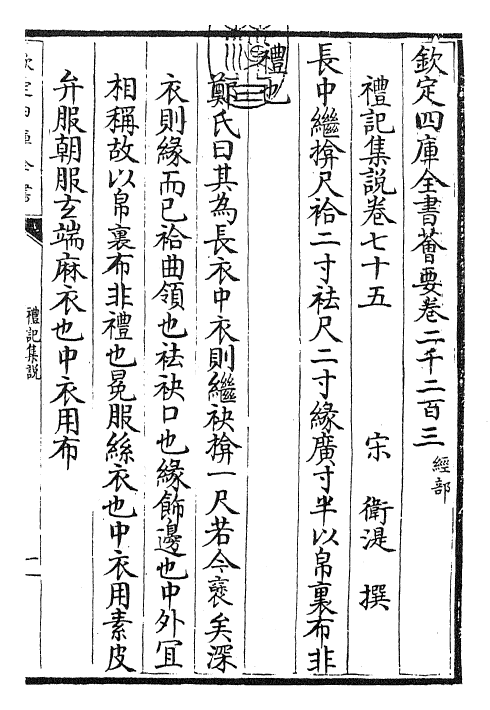 欽定四庫全書薈要卷二千二百三
經部
禮記集說卷七十五
宋 衛湜 撰
長中繼揜尺袷二寸袪尺二寸緣廣寸半以帛裏布非
禮也
鄭氏曰其為長衣中衣則繼袂揜一尺若今褎矣深
衣則緣而已袷曲領也袪袂口也緣飾邊也中外宜
相稱故以帛裏布非禮也冕服絲衣也中衣用素皮
弁服朝服玄端麻衣也中衣用布
禮記集說
一